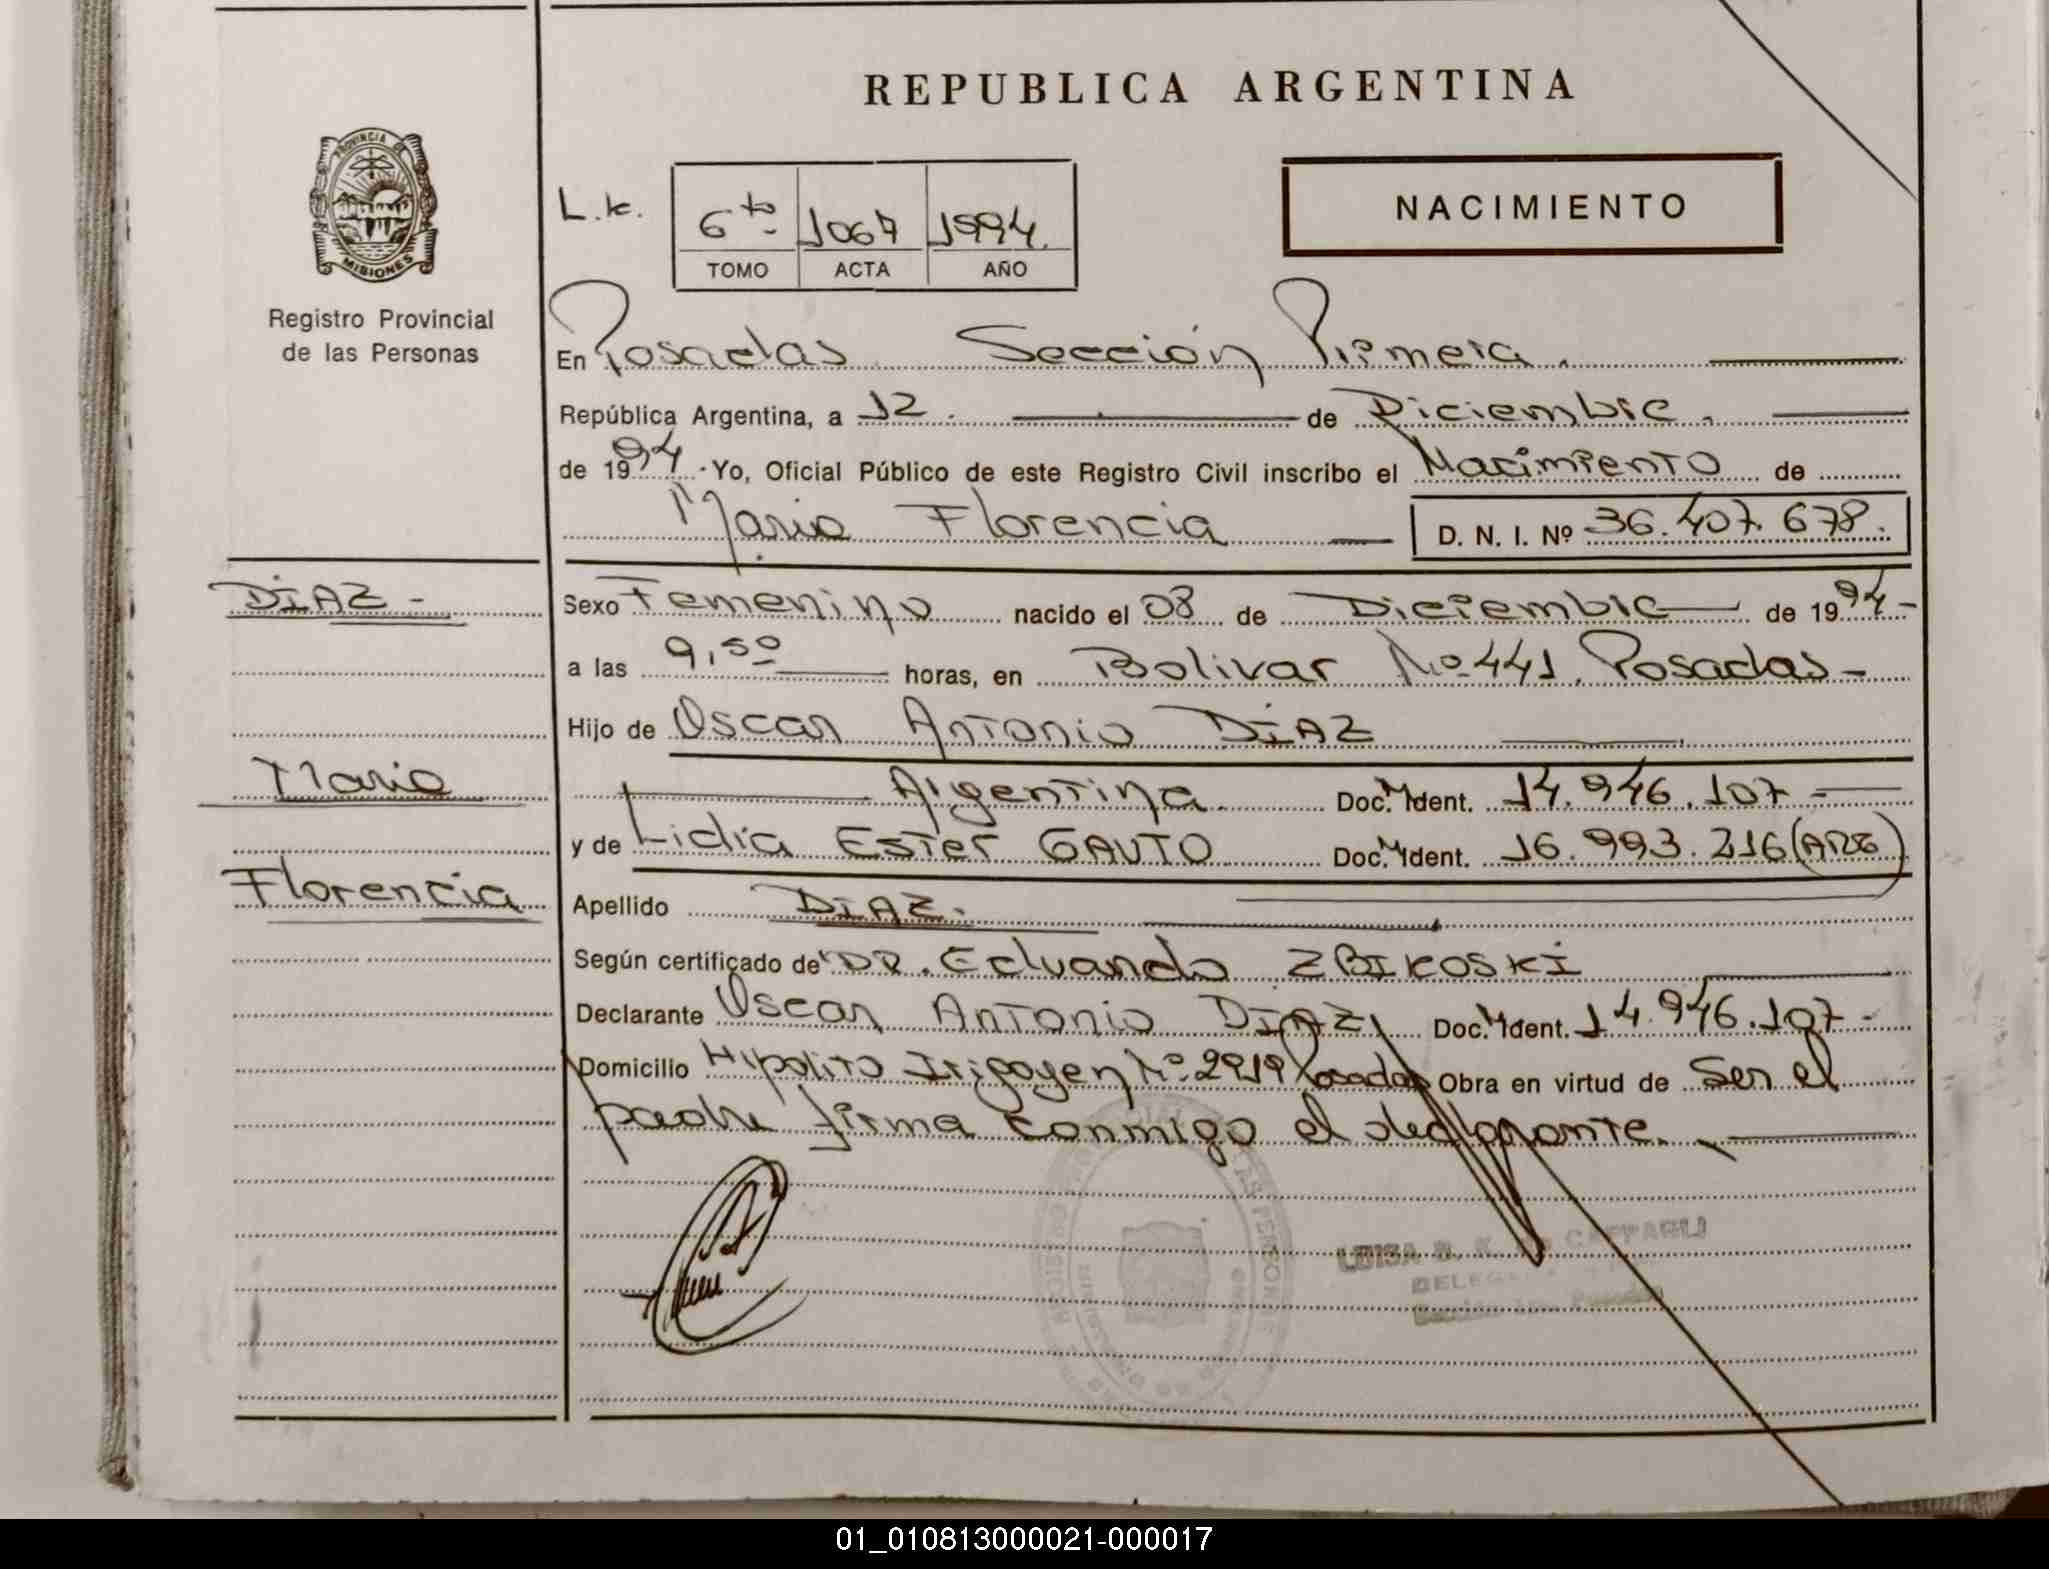 REPUBLICA ARGENTINA
PROVINCIA DE
MISIONES
Registro Provincial
de las Personas
L.k.
6to 1067 1994.
TOMO ACTA AÑO
NACIMIENTO
En Posadas Sección Primera.
República Argentina, a 12. de Diciembre.
de 1994. Yo, Oficial Público de este Registro Civil inscribo el Nacimiento de
Maria Florencia D. N. I. Nº 36.407.678.
DÍAZ -
Maria
Florencia
Sexo Femenino nacido el 08 de Diciembre de 1994.-
a las 9,50 horas, en Bolivar Nº 441. Posadas -
Hijo de Oscar Antonio DÍAZ
Argentina Doc. M Ident. 14.946.107 -
y de Lidia Ester GAUTO Doc. M Ident. 16.993.216 (ARG)
Apellido DÍAZ.
Según certificado de DR. Eduardo ZBIKOSKI
Declarante Oscar Antonio DÍAZ Doc. M Ident. 14.946.107 -
Domicilio Hipolito Irigoyen Nº 2919 Posadas Obra en virtud de Ser el
padre firma conmigo el declarante.
LUISA B. K. DE CAFFARELI
Sección 1ra. Posadas
01_010813000021-000017